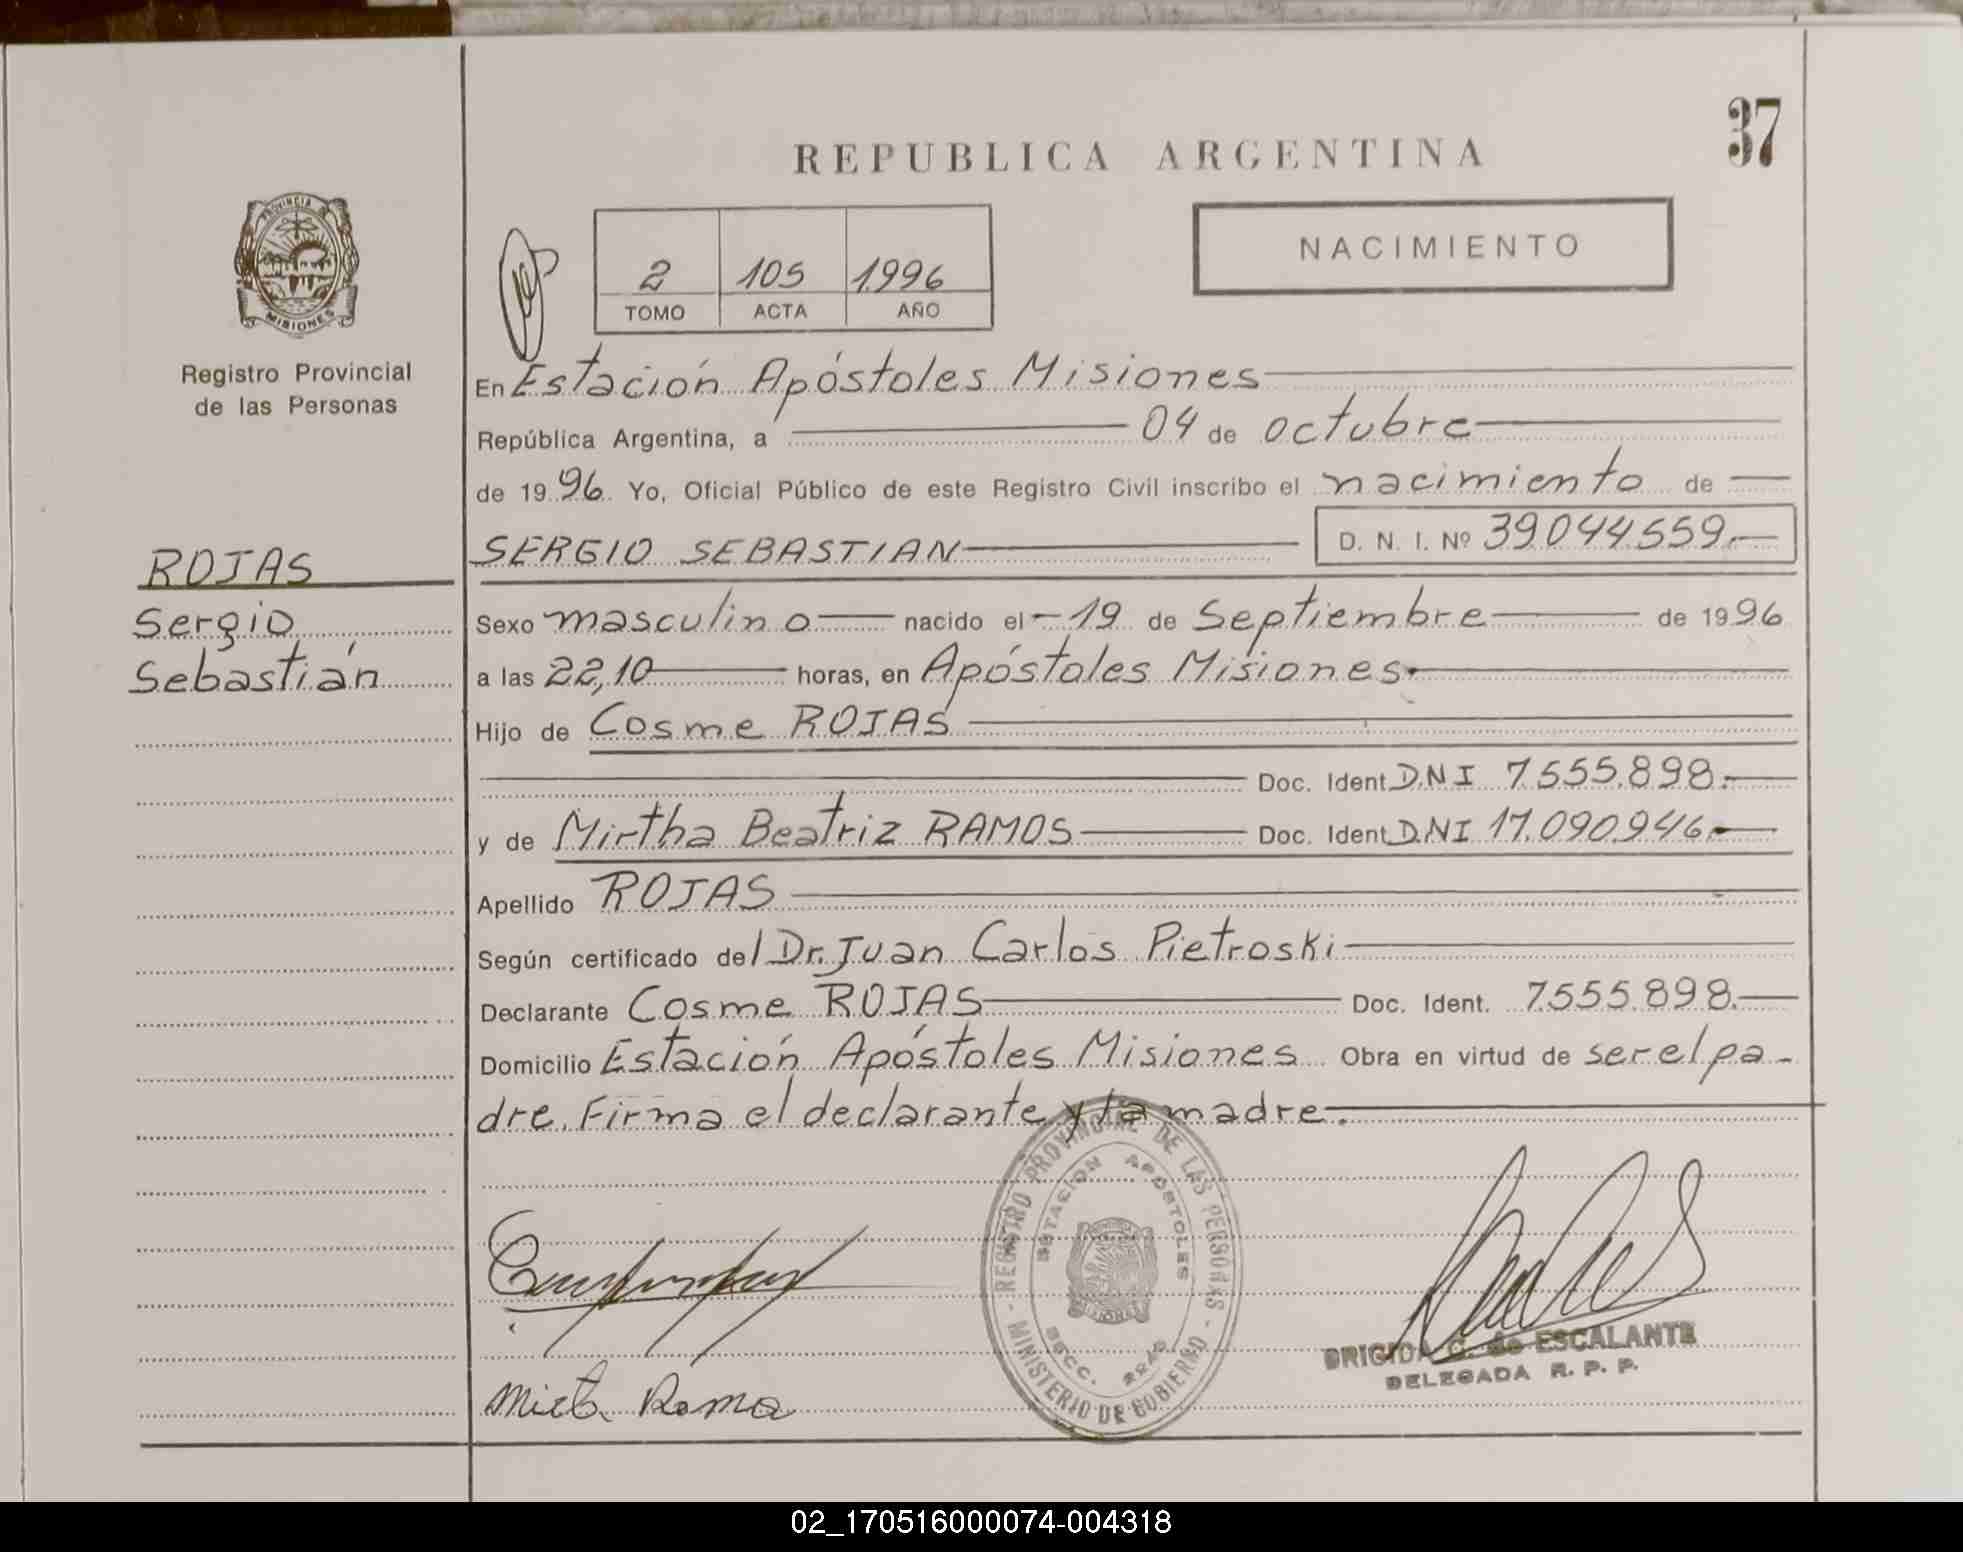 37
REPUBLICA ARGENTINA
NACIMIENTO
PROVINCIA DE
MISIONES
2 105 1.996
TOMO ACTA AÑO
Registro Provincial
de las Personas
En Estación Apóstoles Misiones
República Argentina, a 04 de octubre
de 1996 Yo, Oficial Público de este Registro Civil inscribo el nacimiento de
SERGIO SEBASTIAN D. N. I. Nº 39.044.559.-
ROJAS
Sergio
Sebastián
Sexo masculino nacido el 19 de Septiembre de 1996
a las 22,10 horas, en Apóstoles Misiones.
Hijo de Cosme ROJAS
Doc. Ident. DNI 7.555.898.-
y de Mirtha Beatriz RAMOS Doc. Ident. DNI 17.090.946.-
Apellido ROJAS
Según certificado del Dr. Juan Carlos Pietroski
Declarante Cosme ROJAS Doc. Ident. 7.555.898.-
Domicilio Estación Apóstoles Misiones Obra en virtud de ser el pa-
dre. Firma el declarante y la madre.
REGISTRO PROVINCIAL DE LAS PERSONAS - MINISTERIO DE GOBIERNO -
ESTACION APOSTOLES
SECC.
BRIGIDA G. de ESCALANTE
DELEGADA R. P. P.
02_170516000074-004318